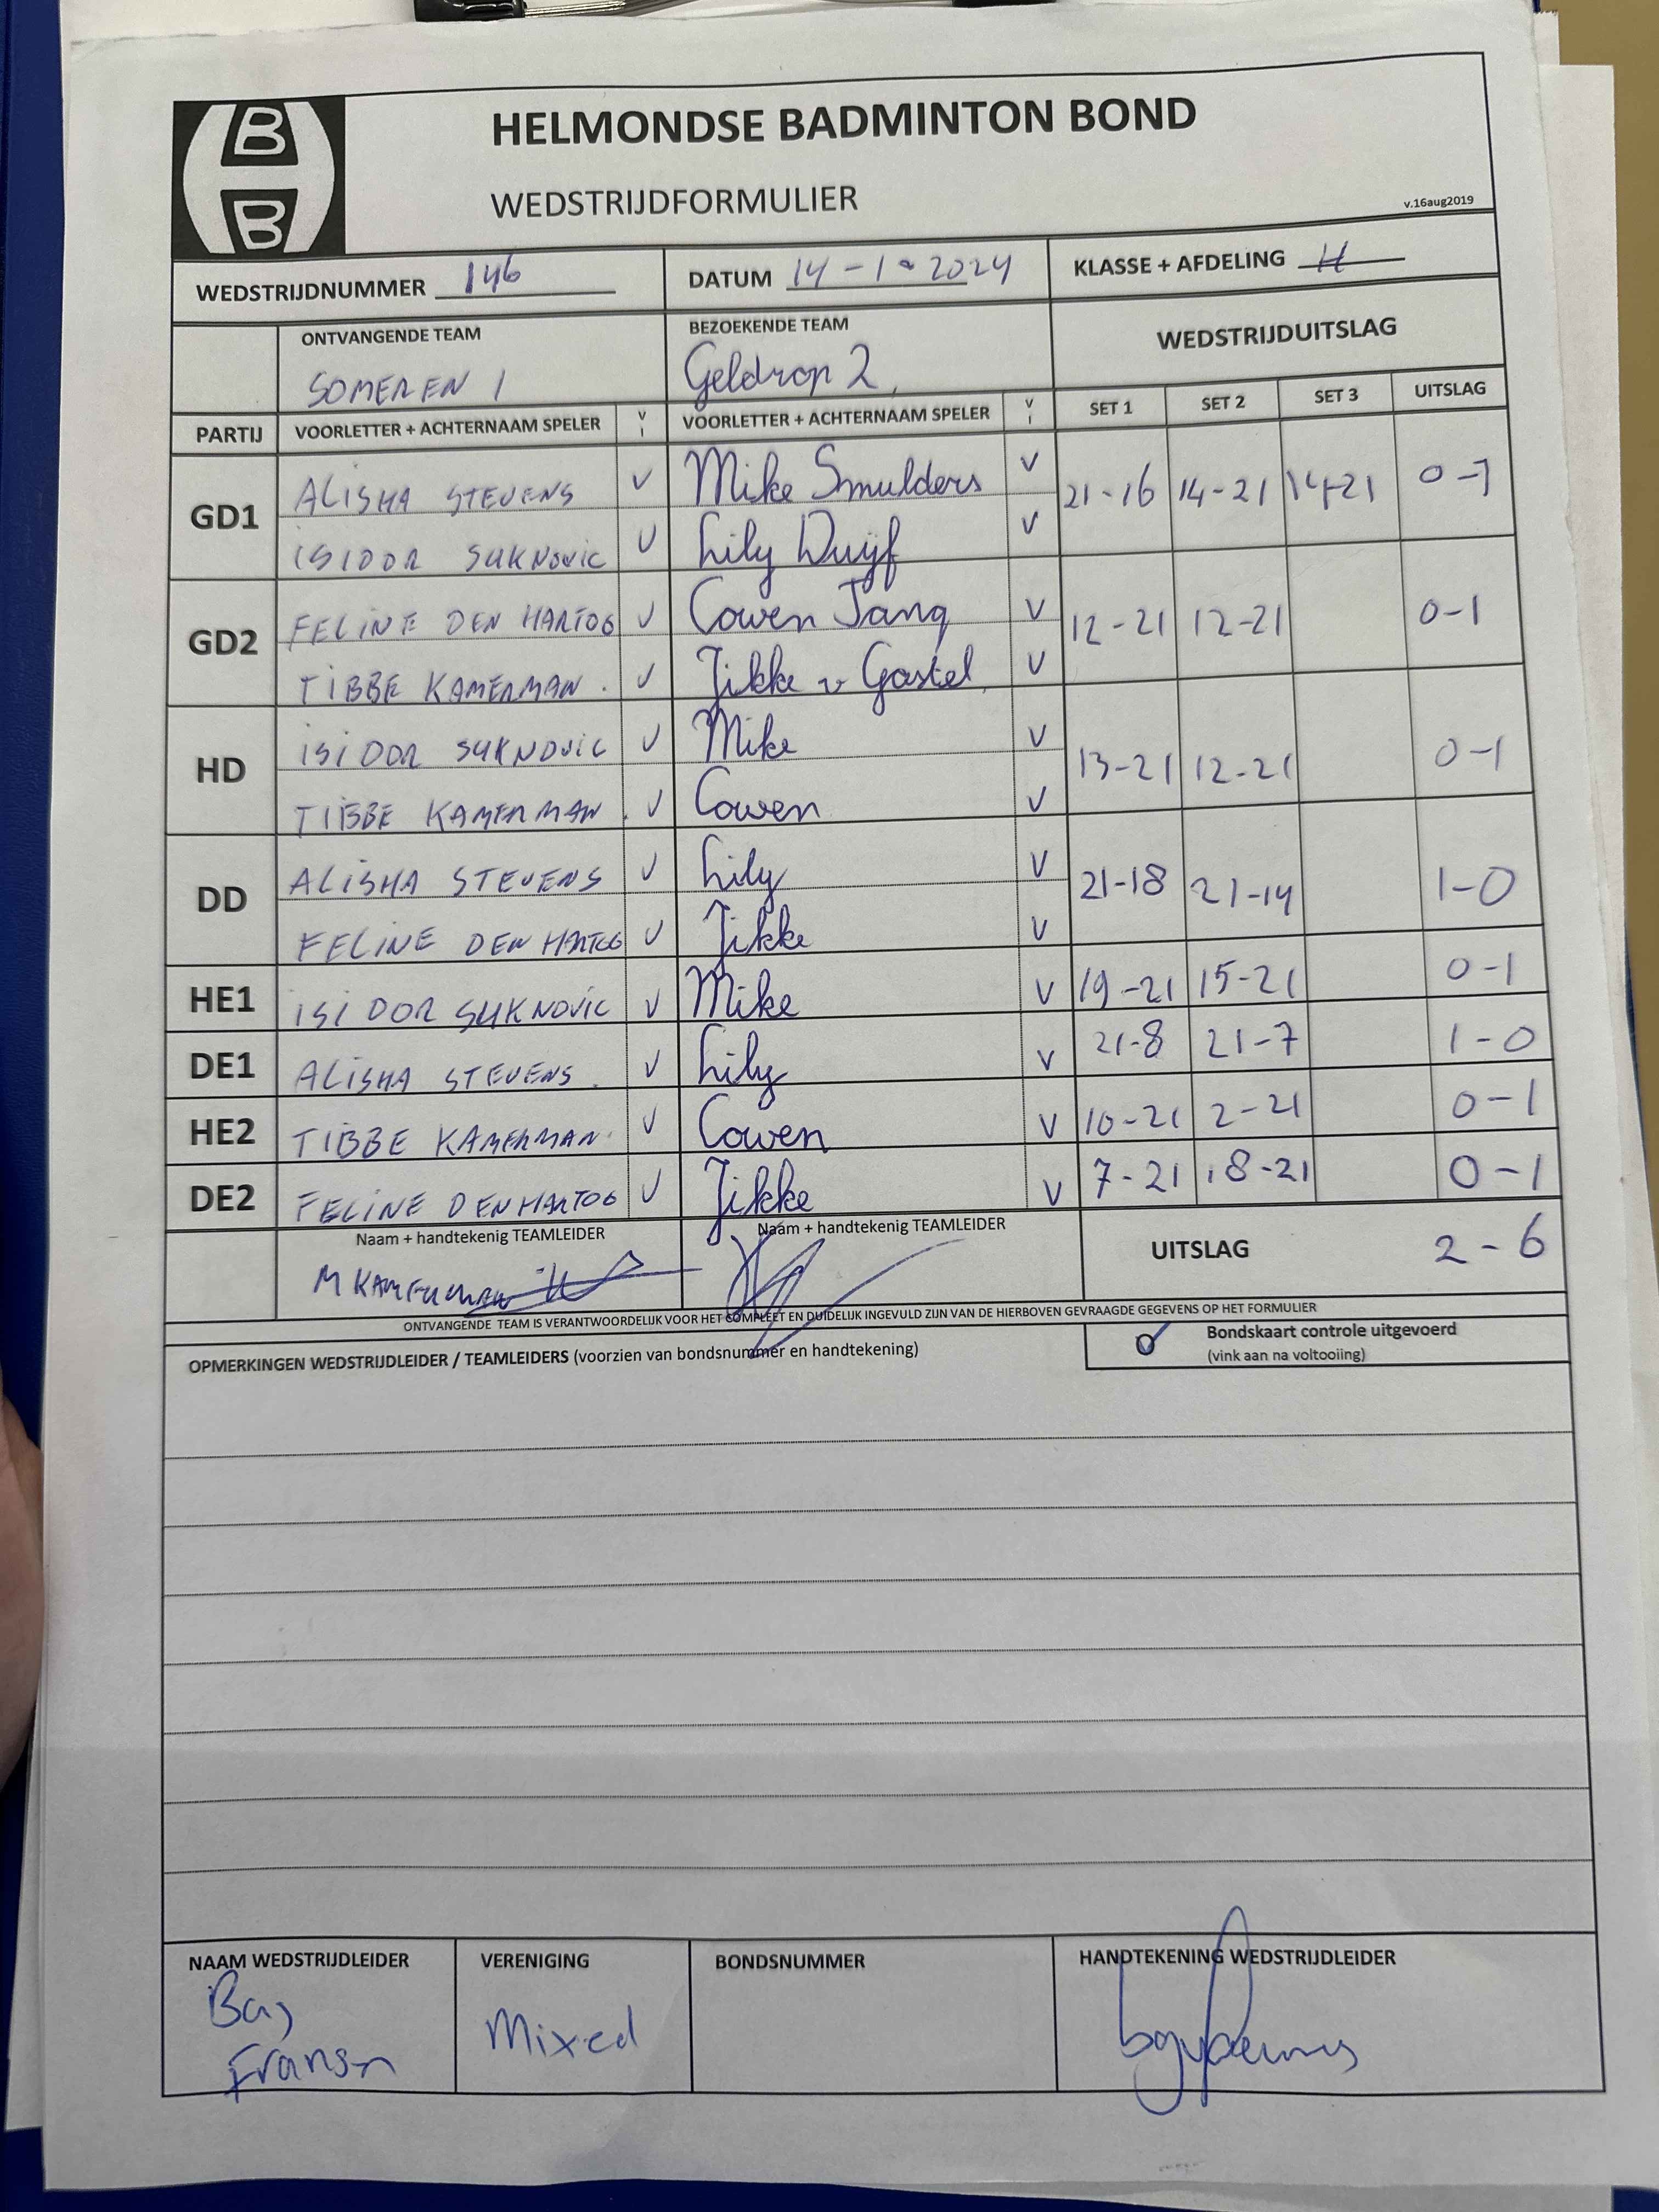 B
B
HELMONDSE BADMINTON BOND
WEDSTRIJDFORMULIER
v.16aug2019
WEDSTRIJDNUMMER 146 DATUM 14-1-2024 KLASSE + AFDELING H
ONTVANGENDE TEAM BEZOEKENDE TEAM WEDSTRIJDUITSLAG
SOMEREN 1 Geldrop 2
PARTIJ VOORLETTER + ACHTERNAAM SPELER V I VOORLETTER + ACHTERNAAM SPELER V I SET 1 SET 2 SET 3 UITSLAG
GD1 ALISHA STEVENS V Mike Smulders V 21-16 14-21 14-21 0-1
ISIDOR SUKNOVIC V Lily Duijf V
GD2 FELINE DEN HARTOG V Cowen Jang V 12-21 12-21 0-1
TIBBE KAMERMAN. V Jikke v Gastel V
HD ISIDOR SUKNOVIC V Mike V 13-21 12-21 0-1
TIBBE KAMERMAN. V Cowen V
DD ALISHA STEVENS V Lily V 21-18 21-14 1-0
FELINE DEN HARTOG V Jikke V
HE1 ISIDOR SUKNOVIC V Mike V 19-21 15-21 0-1
DE1 ALISHA STEVENS. V Lily V 21-8 21-7 1-0
HE2 TIBBE KAMERMAN. V Cowen V 10-21 2-21 0-1
DE2 FELINE DEN HARTOG V Jikke V 7-21 18-21 0-1
Naam + handtekenig TEAMLEIDER Naam + handtekenig TEAMLEIDER UITSLAG 2-6
M KAMERMAN
ONTVANGENDE TEAM IS VERANTWOORDELIJK VOOR HET COMPLEET EN DUIDELIJK INGEVULD ZIJN VAN DE HIERBOVEN GEVRAAGDE GEGEVENS OP HET FORMULIER
OPMERKINGEN WEDSTRIJDLEIDER / TEAMLEIDERS (voorzien van bondsnummer en handtekening)
Bondskaart controle uitgevoerd
(vink aan na voltooiing)
NAAM WEDSTRIJDLEIDER VERENIGING BONDSNUMMER HANDTEKENING WEDSTRIJDLEIDER
Mixed